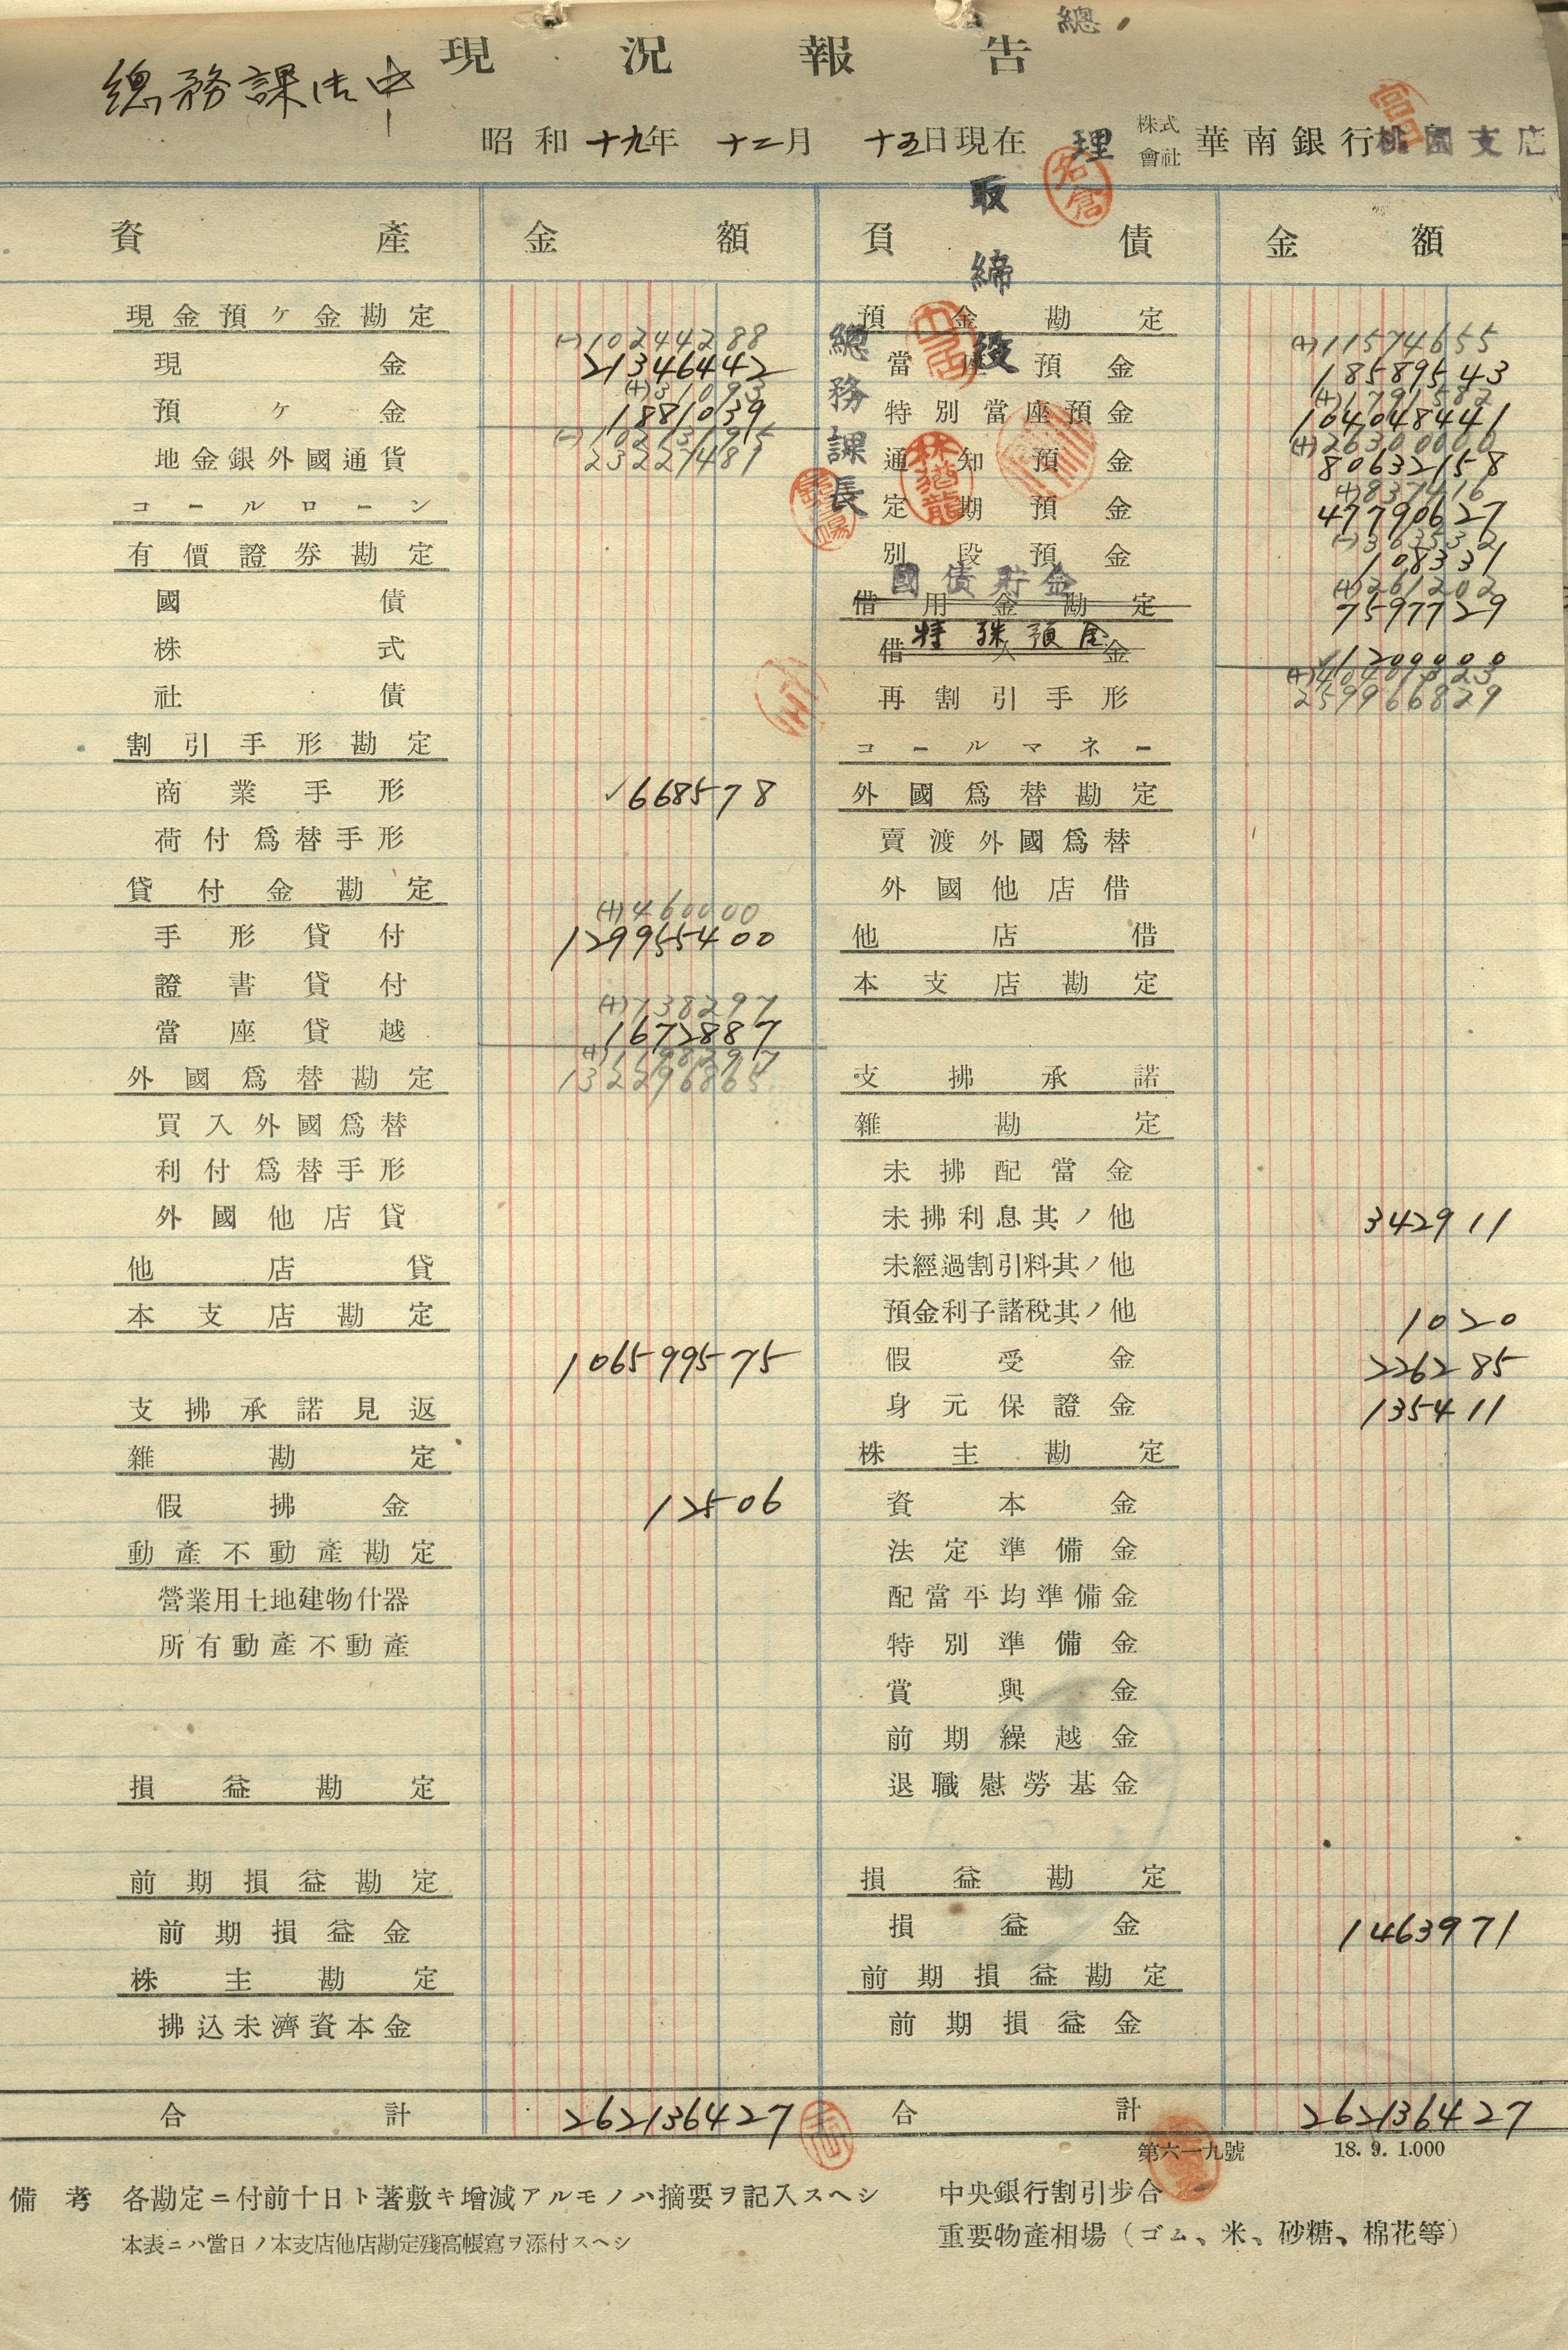 總
現況報告
總務課御中
昭和十九年十二月十五日現在
理
株式會社 華南銀行桃園支店
取締役
總務課長
名倉
林猶龍
資產 金額
現金預ケ金勘定
(-)10244288
現金 21346442
(+)31093
預ケ金 1881039
(-)10213195
地金銀外國通貨 23227481
コールローン
有價證券勘定
國債
株式
社債
割引手形勘定
商業手形 ✓668578
荷付爲替手形
貸付金勘定
(+)460000
手形貸付 129955400
證書貸付
(+)738297
當座貸越 1672887
(+)1198297
外國爲替勘定 132296865
買入外國爲替
利付爲替手形
外國他店貸
他店貸
本支店勘定
106599575
支拂承諾見返
雜勘定
假拂金 12506
動產不動產勘定
營業用土地建物什器
所有動產不動產
損益勘定
前期損益勘定
前期損益金
株主勘定
拂込未濟資本金
合計 262136427
負債 金額
預金勘定
(+)11574655
當座預金 18589543
(+)1791582
特別當座預金 104048441
(+)26300000
通知預金 80632158
(+)837416
定期預金 47790627
(-)363532
別段預金 108331
國債貯金
(+)261202
借用金勘定 7597729
特殊預金
借入金 ✓1200000
(+)40401323
再割引手形 259966829
コールマネー
外國爲替勘定
賣渡外國爲替
外國他店借
他店借
本支店勘定
支拂承諾
雜勘定
未拂配當金
未拂利息其ノ他 342911
未經過割引料其ノ他
預金利子諸稅其ノ他 1020
假受金 226285
身元保證金 135411
株主勘定
資本金
法定準備金
配當平均準備金
特別準備金
賞與金
前期繰越金
退職慰勞基金
損益勘定
損益金 1463971
前期損益勘定
前期損益金
合計 262136427
第六一九號 18. 9. 1.000
備考 各勘定ニ付前十日ト著敷キ增減アルモノハ摘要ヲ記入スヘシ
本表ニハ當日ノ本支店他店勘定殘高帳寫ヲ添付スヘシ
中央銀行割引步合
重要物產相場（ゴム、米、砂糖、棉花等）